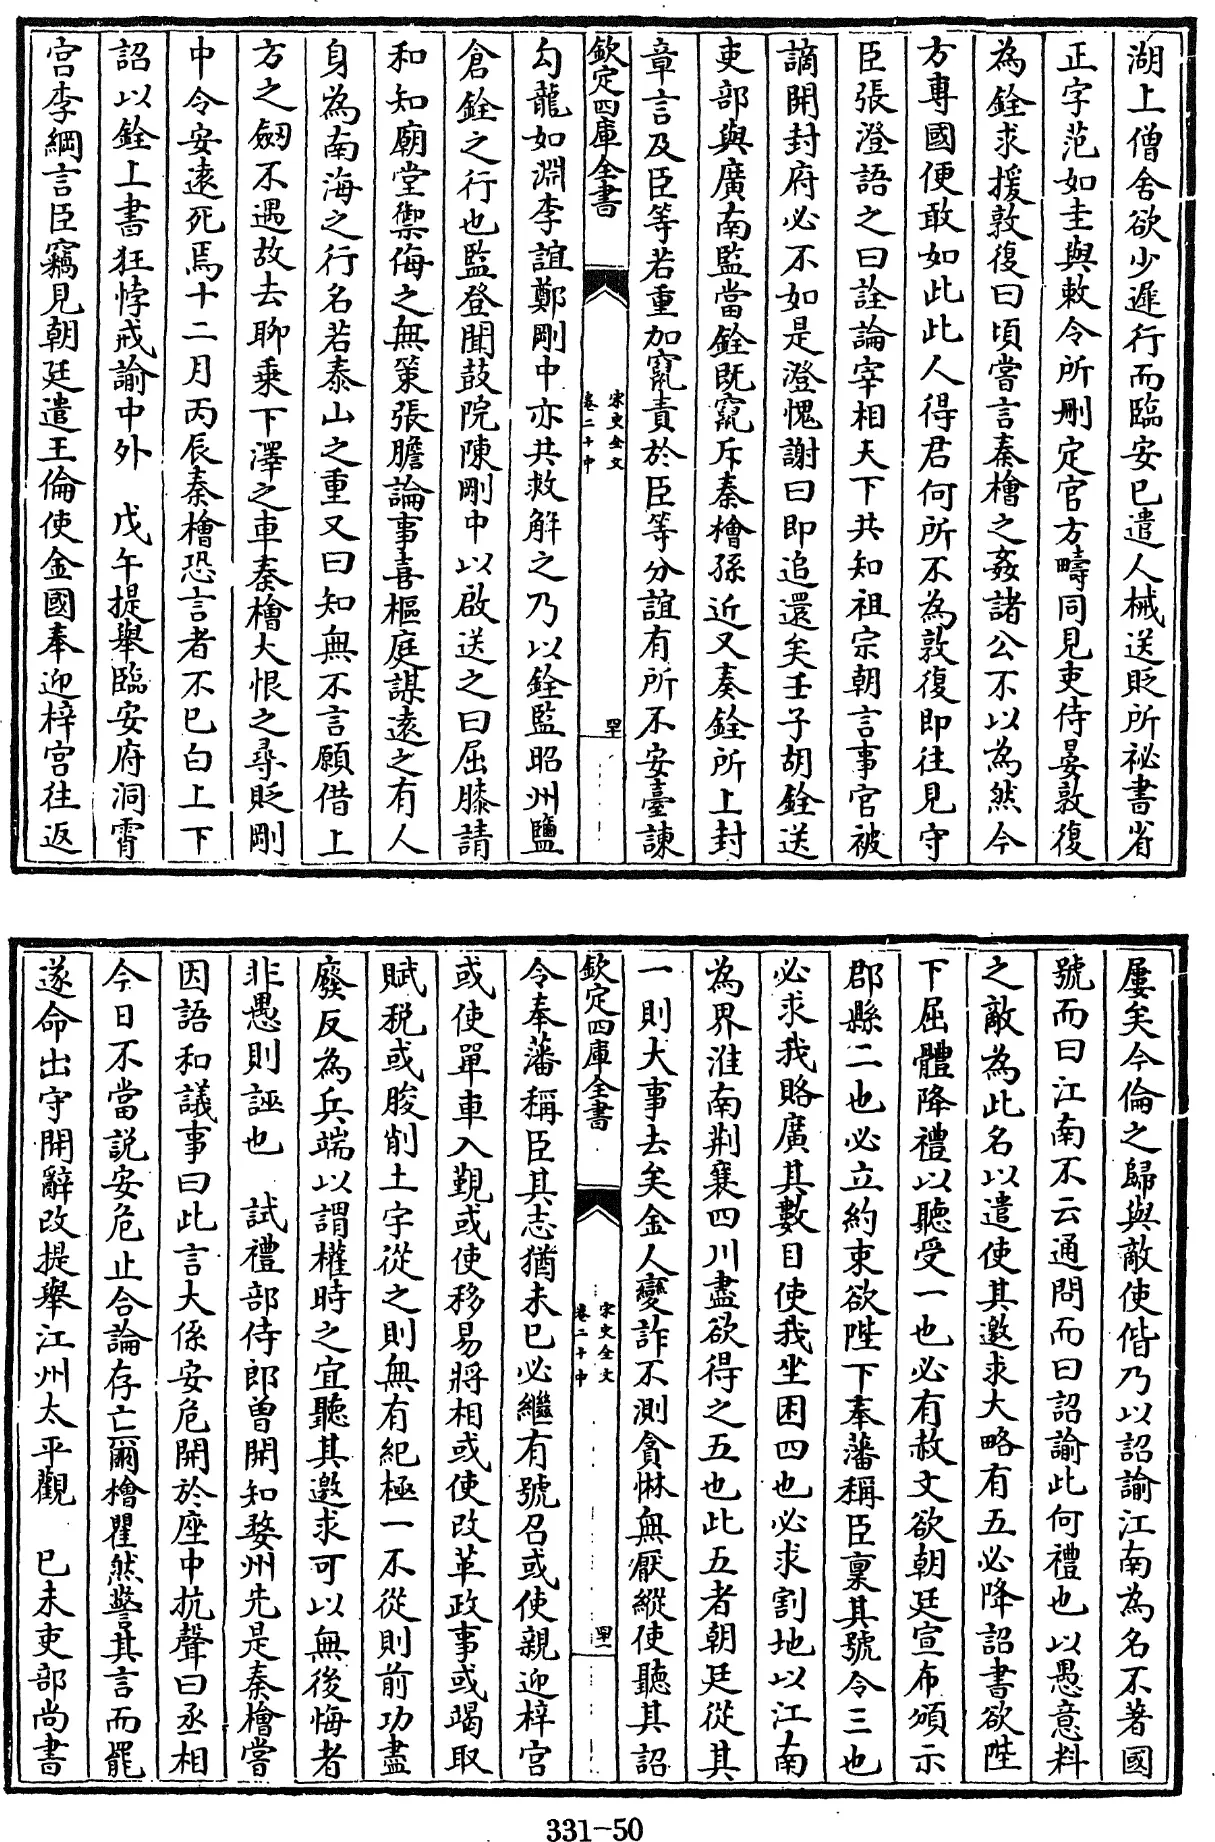 湖上僧舍欲少遲行而臨安已遣人械送貶所祕書省
正字范如圭與敕令所刪定官方疇同見吏侍晏敦復
為銓求援敦復曰頃嘗言秦檜之姦諸公不以為然今
方專國便敢如此此人得君何所不為敦復即往見守
臣張澄語之曰詮論宰相天下共知祖宗朝言事官被
謫開封府必不如是澄愧謝曰即追還矣壬子胡銓送
吏部與廣南監當銓既竄斥秦檜孫近又奏銓所上封
章言及臣等若重加竄責於臣等分誼有所不安臺諫
欽定四庫全書
宋史全文
卷二十中
罕
勾龍如淵李誼鄭剛中亦共救解之乃以銓監昭州鹽
倉銓之行也監登聞鼓院陳剛中以啟送之曰屈膝請
和知廟堂禦侮之無策張膽論事喜樞庭謀遠之有人
身為南海之行名若泰山之重又曰知無不言願借上
方之劔不遇故去聊乗下澤之車秦檜大恨之尋貶剛
中令安逺死焉十二月丙辰秦檜恐言者不已白上下
詔以銓上書狂悖戒諭中外　戊午提舉臨安府洞霄
宮李綱言臣竊見朝廷遣王倫使金國奉迎梓宮往返
屢矣今倫之歸與敵使偕乃以詔諭江南為名不著國
號而曰江南不云通問而曰詔諭此何禮也以愚意料
之敵為此名以遣使其邀求大略有五必降詔書欲陛
下屈體降禮以聽受一也必有赦文欲朝廷宣布頒示
郡縣二也必立約束欲陛下奉藩稱臣稟其號令三也
必求我賂廣其數目使我坐困四也必求割地以江南
為界淮南荆襄四川盡欲得之五也此五者朝廷從其
一則大事去矣金人變詐不測貪惏無厭縱使聽其詔
欽定四庫全書
宋史全文
卷二十中
罒一
令奉藩稱臣其志猶未已必繼有號召或使親迎梓宮
或使單車入覲或使移易將相或使改革政事或竭取
賦稅或朘削土宇從之則無有紀極一不從則前功盡
廢反為兵端以謂權時之宜聽其邀求可以無後悔者
非愚則誣也　試禮部侍郎曾開知婺州先是秦檜嘗
因語和議事曰此言大係安危開於座中抗聲曰丞相
今日不當説安危止合論存亡爾檜瞿然驚其言而罷
遂命出守開辭改提舉江州太平觀　已未吏部尚書
331-50